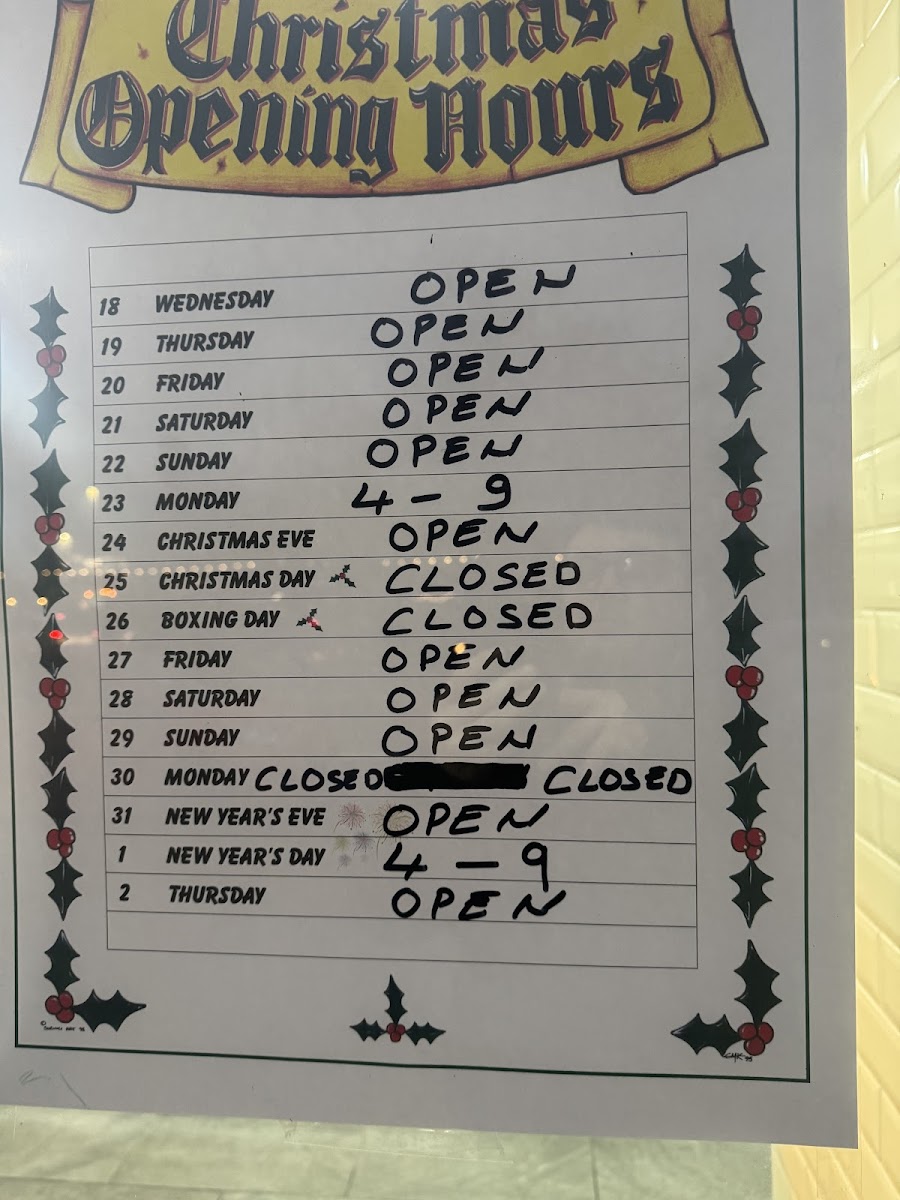 Christmas
Opening Hours
18 WEDNESDAY OPEN
19 THURSDAY OPEN
20 FRIDAY OPEN
21 SATURDAY OPEN
22 SUNDAY OPEN
23 MONDAY 4 - 9
24 CHRISTMAS EVE OPEN
25 CHRISTMAS DAY CLOSED
26 BOXING DAY CLOSED
27 FRIDAY OPEN
28 SATURDAY OPEN
29 SUNDAY OPEN
30 MONDAY CLOSED CLOSED
31 NEW YEAR'S EVE OPEN
1 NEW YEAR'S DAY 4 - 9
2 THURSDAY OPEN